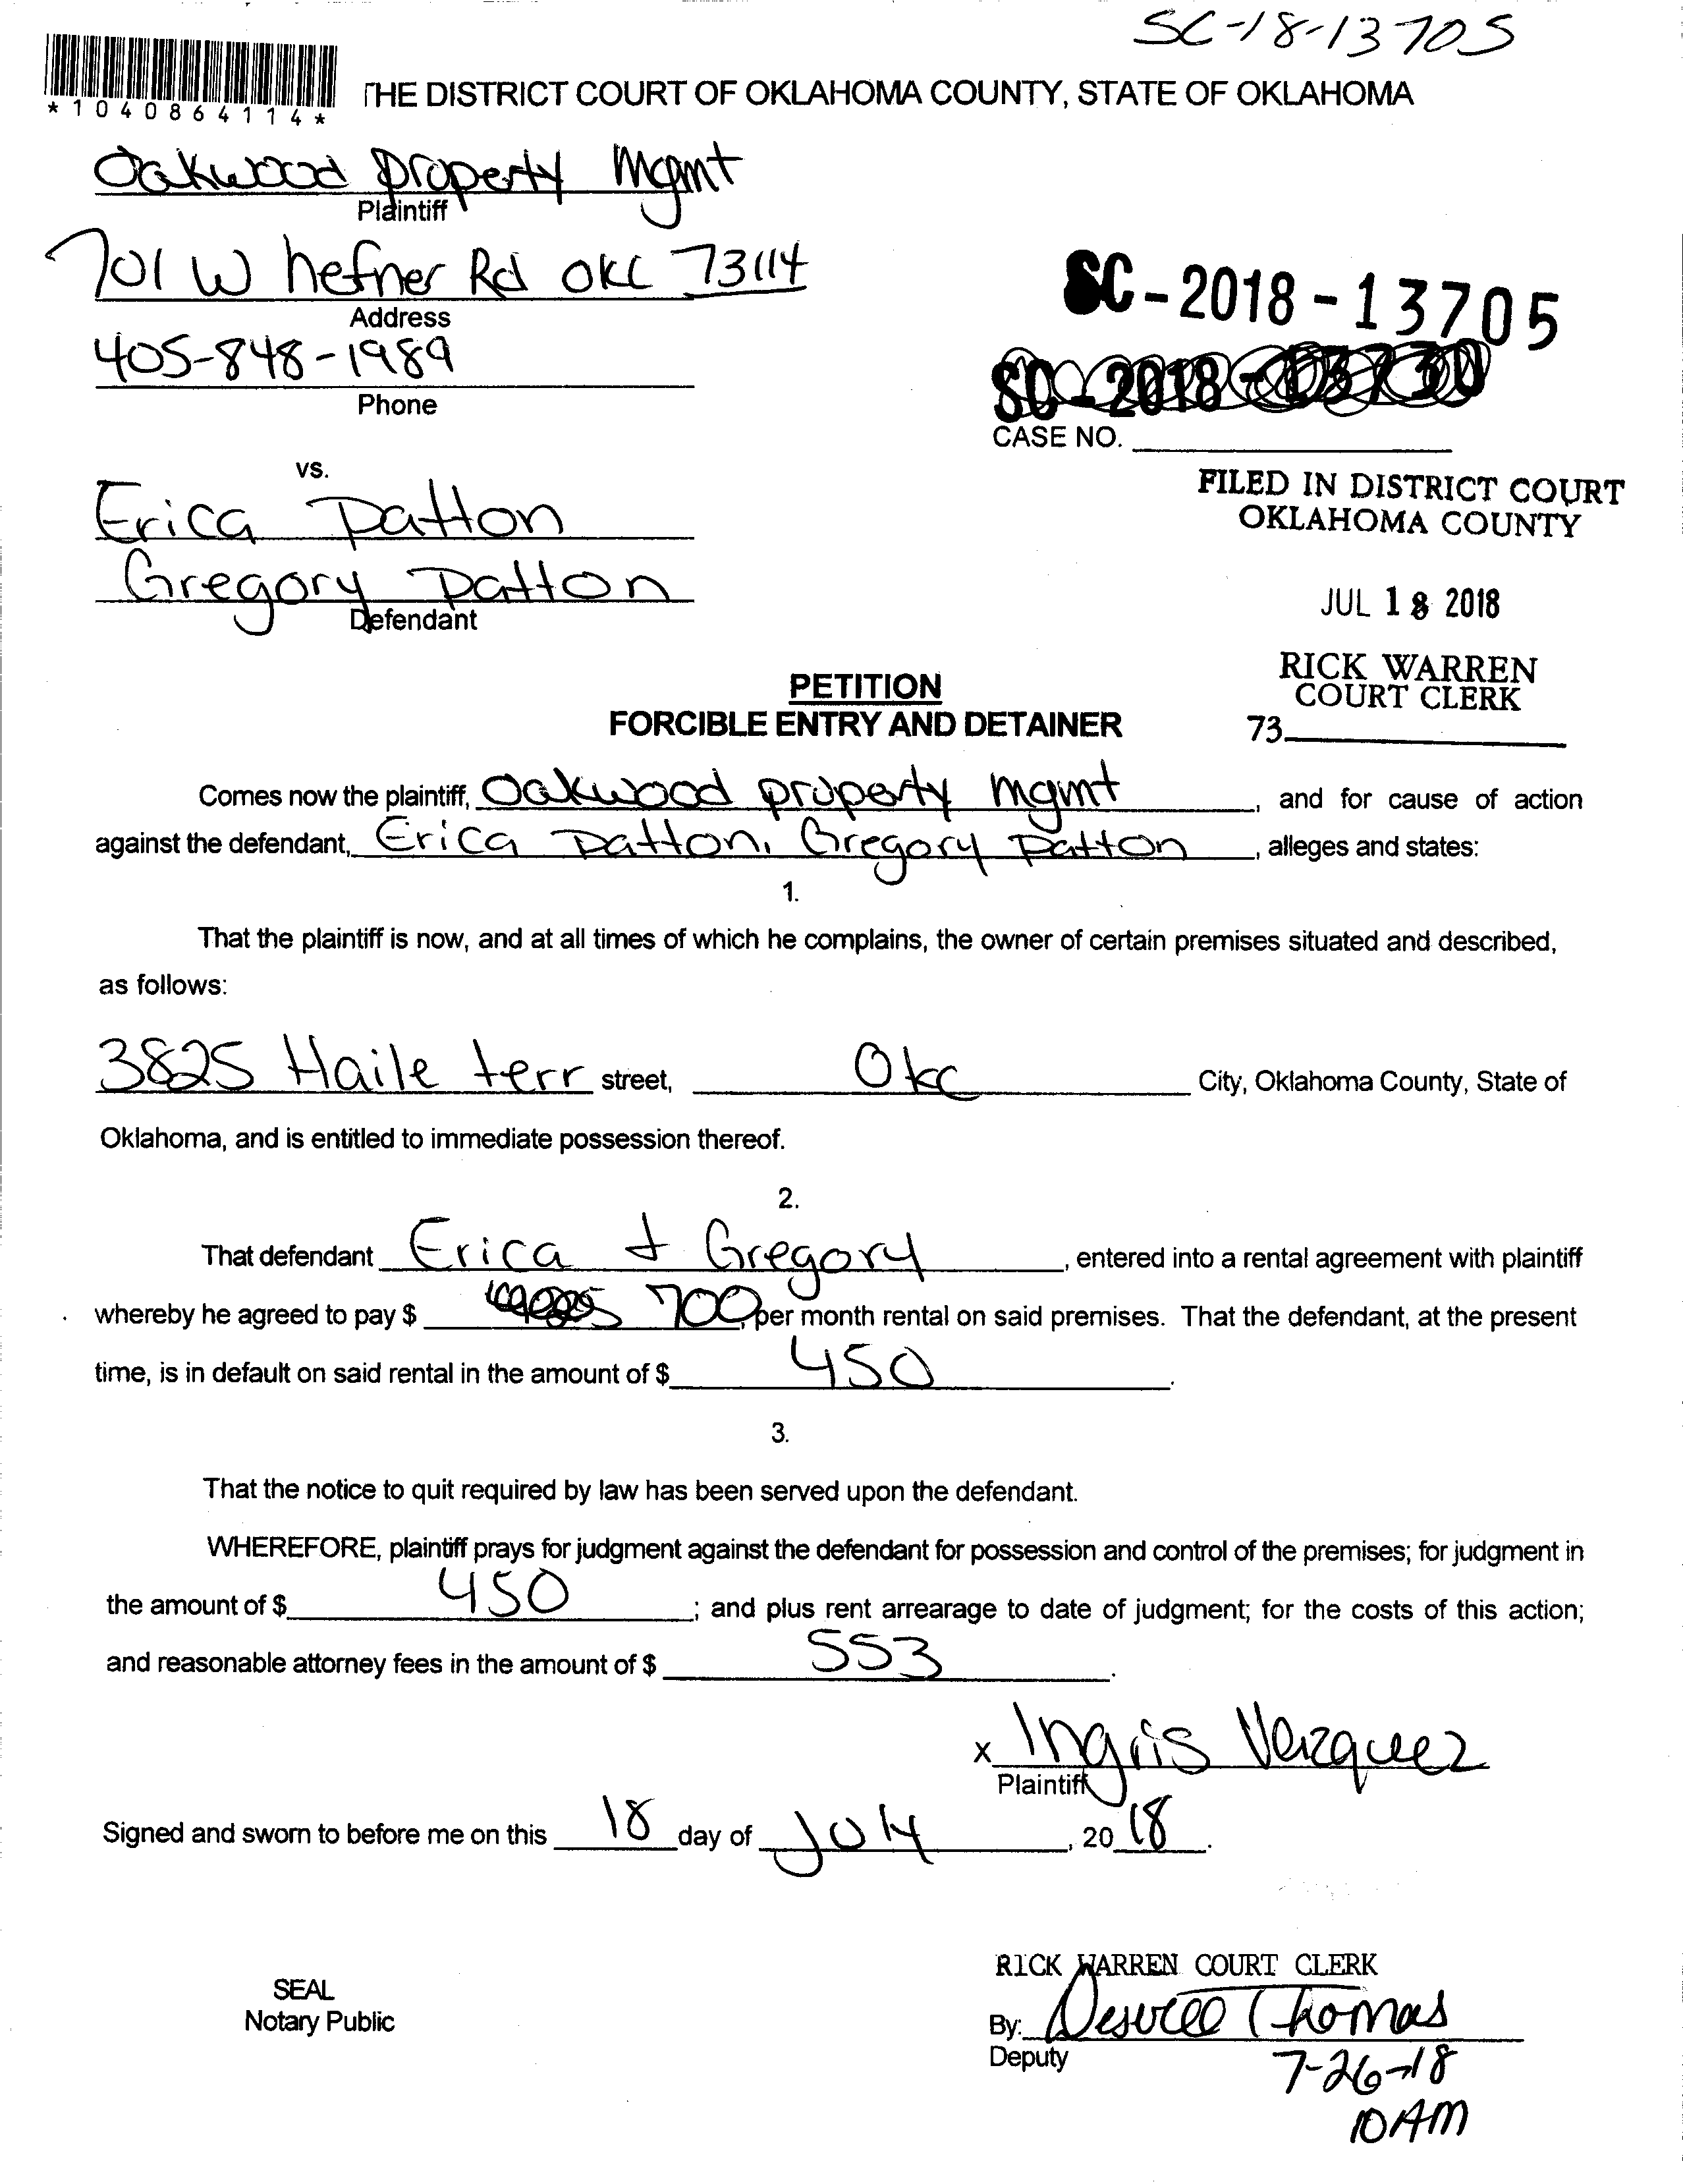 SC-18-13705
*1040864114*
THE DISTRICT COURT OF OKLAHOMA COUNTY, STATE OF OKLAHOMA
Oakwood property Mgmt
Plaintiff
701 W hefner Rd OKC 73114
Address
405-848-1989
Phone
SC-2018-13705
SC-2018-13730
CASE NO.
vs.
Erica Patton
Gregory Patton
Defendant
FILED IN DISTRICT COURT
OKLAHOMA COUNTY
JUL 18 2018
RICK WARREN
COURT CLERK
73
PETITION
FORCIBLE ENTRY AND DETAINER
Comes now the plaintiff, Oakwood property mgmt, and for cause of action
against the defendant, Erica Patton, Gregory Patton, alleges and states:
1.
That the plaintiff is now, and at all times of which he complains, the owner of certain premises situated and described,
as follows:
3825 Haile terr street, Okc City, Oklahoma County, State of
Oklahoma, and is entitled to immediate possession thereof.
2.
That defendant Erica + Gregory, entered into a rental agreement with plaintiff
whereby he agreed to pay $ 700, per month rental on said premises. That the defendant, at the present
time, is in default on said rental in the amount of $ 450.
3.
That the notice to quit required by law has been served upon the defendant.
WHEREFORE, plaintiff prays for judgment against the defendant for possession and control of the premises; for judgment in
the amount of $ 450; and plus rent arrearage to date of judgment; for the costs of this action;
and reasonable attorney fees in the amount of $ 553.
x Ingris Vazquez
Plaintiff
Signed and sworn to before me on this 18 day of July, 2018.
SEAL
Notary Public
RICK WARREN COURT CLERK
By: Thomas
Deputy
7-26-18
10AM